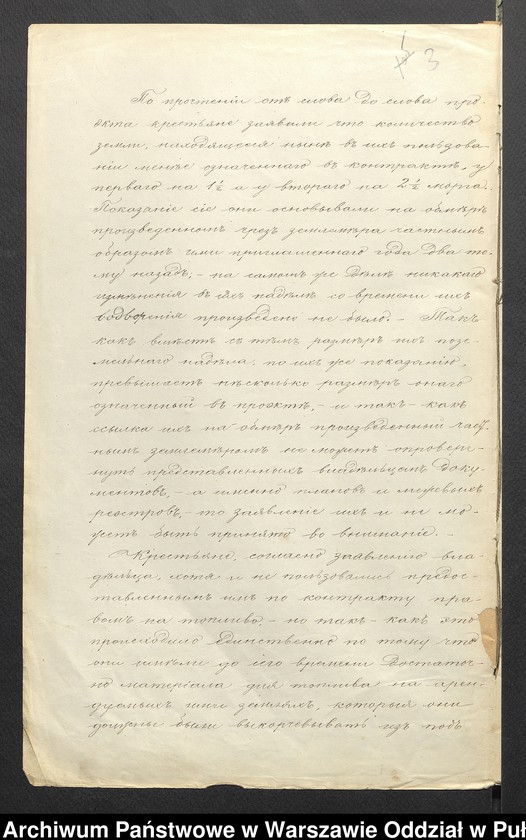 3
По прочтеніи отъ слова до слова про-
екта крестьяне заявили что количество
земли, находящееся нынѣ въ ихъ пользова-
ніи менѣе означеннаго въ контрактѣ, у
перваго на 1½ а у втораго на 2½ морга.
Показаніе сіе они основывали на обмѣрѣ
произведенномъ чрезъ землемѣра частнымъ
образомъ ими приглашеннаго года два то-
му назадъ, - на самомъ же дѣлѣ никакаго
измѣненія въ ихъ надѣлѣ со времени ихъ
водворенія произведено не было. - Такъ
какъ вмѣстѣ съ тѣмъ размѣръ ихъ позе-
мельнаго надѣла, по ихъ же показанію,
превышаетъ нѣсколько размѣръ онаго
означенный въ проэктѣ, - и такъ - какъ
ссылка ихъ на обмѣръ произведенный част-
нымъ землемѣромъ не можетъ опроверг-
нуть представленныхъ владѣльцемъ доку-
ментовъ, - а именно плановъ и межевыхъ
реестровъ, - то заявленіе ихъ и не мо-
жетъ быть принято во вниманіе. -
Крестьяне, согласно заявленію вла-
дѣльца, хотя и не пользовались предос-
тавленнымъ имъ по контракту пра-
вомъ на топливо, - но такъ - какъ это
происходило единственно по тому что
они имѣли до сего времени достаточ-
но матеріала для топлива на арен-
дуемыхъ ими земляхъ, которыя они
должны были выкорчевывать изъ подъ
Archiwum Państwowe w Warszawie Oddział w Puł